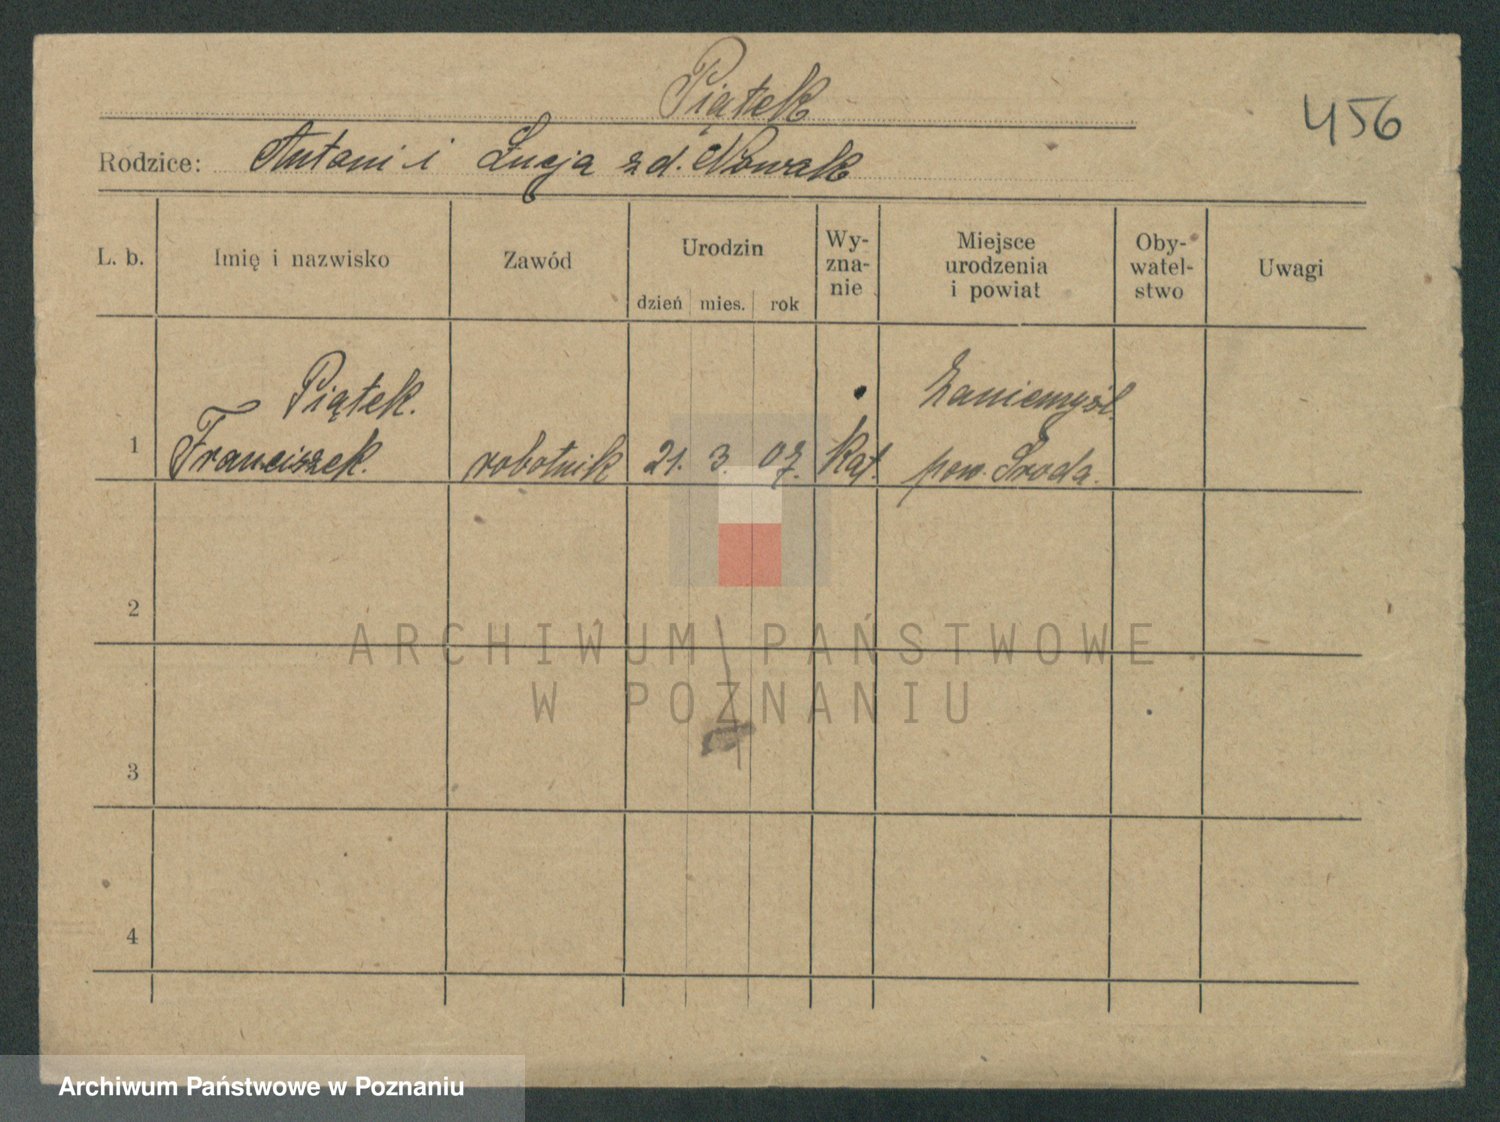 Piątek
456
Rodzice: Antoni i Łucja zd. Nowak
L. b.
Imię i nazwisko
Zawód
Urodzin
dzień mies. rok
Wy-
zna-
nie
Miejsce
urodzenia
i powiat
Oby-
watel-
stwo
Uwagi
1
Piątek.
Franciszek.
robotnik
21. 3. 07.
Kat.
Zaniemyśl.
pow. Środa.
2
3
4
ARCHIWUM PAŃSTWOWE
W POZNANIU
Archiwum Państwowe w Poznaniu